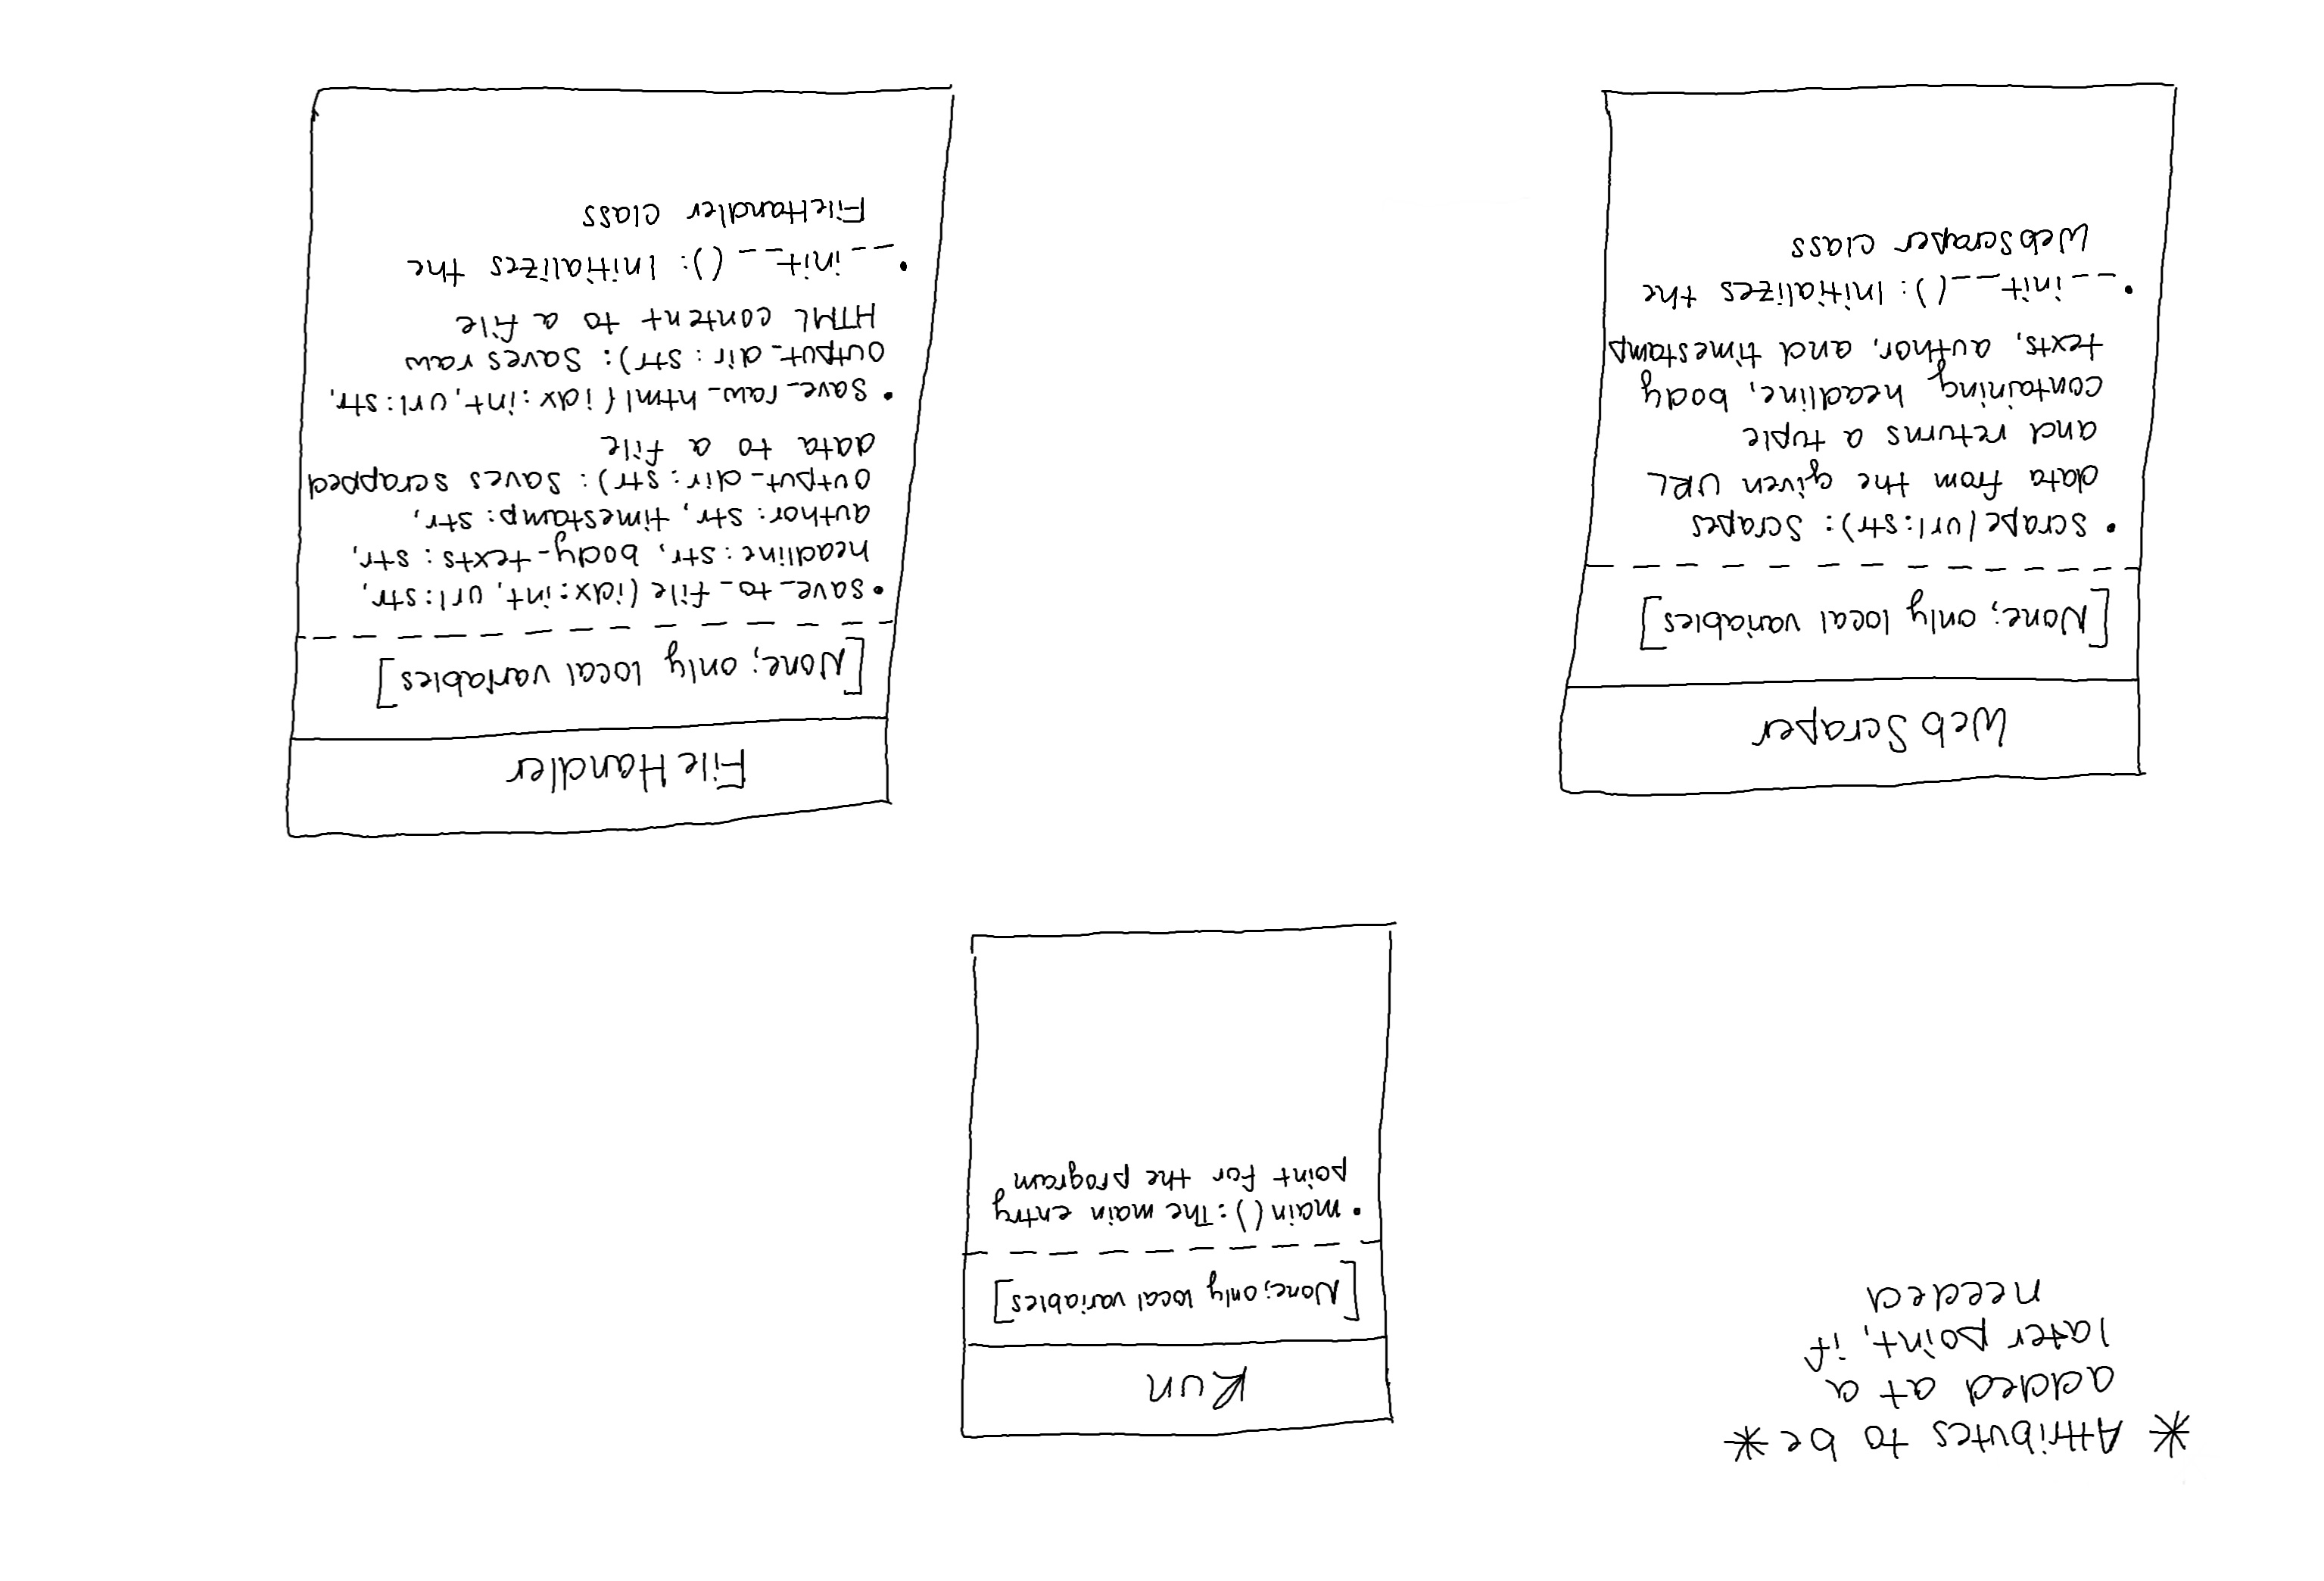 * Attributes to be *
added at a
later point, if
needed
Run
[None; only local variables]
• main(): The main entry
point for the program
Web Scraper
[None; only local variables]
• scrape(url:str): Scrapes
data from the given URL
and returns a tuple
containing headline, body
texts, author, and timestamp
• __init__(): Initializes the
WebScraper class
FileHandler
[None; only local variables]
• save_to_file(idx:int, url:str,
headline:str, body_texts:str,
author:str, timestamp:str,
output_dir:str): Saves scrapped
data to a file
• save_raw_html(idx:int, url:str,
output_dir:str): Saves raw
HTML content to a file
• __init__(): Initializes the
FileHandler class